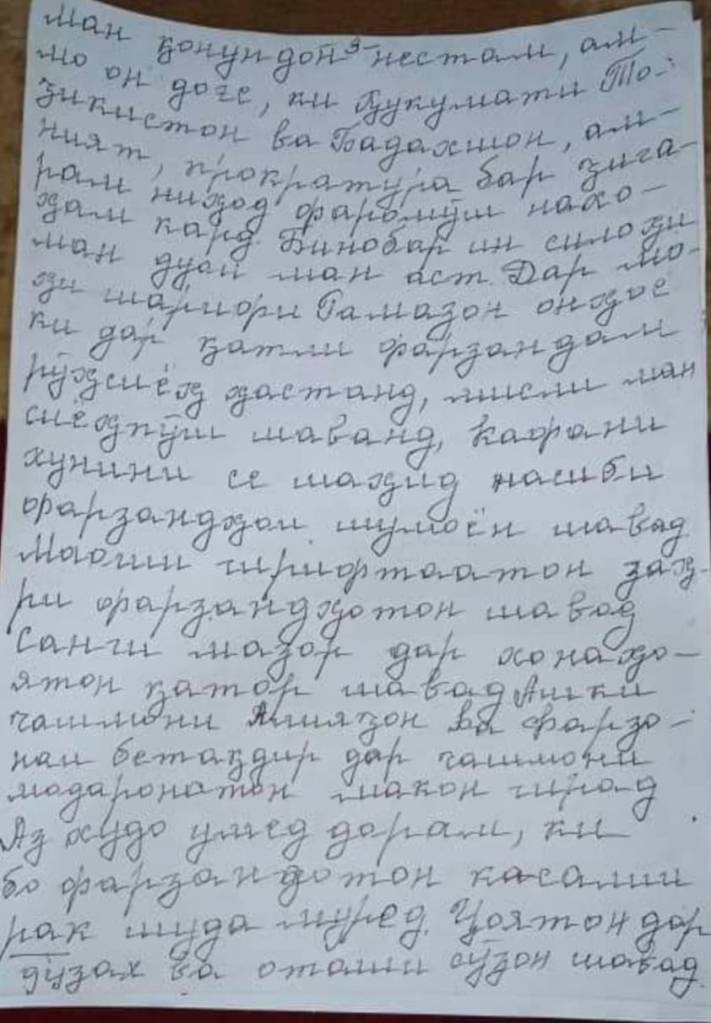 ман қонундон нестам, ам-
мо он доғе, ки ҳукумати То-
ҷикистон ва Бадахшон, ам-
ният, прократура бар ҷига-
рам ниҳод фаромӯш нахо-
ҳам кард. Бинобар ин силоҳи
ман дуои ман аст. Дар мо-
ҳи шарифи Рамазон онҳое
ки дар қатли фарзандам
рӯҳсиёҳ ҳастанд, мисли ман
сиёҳпӯш шаванд, кафани
хунини се шаҳид насиби
фарзандҳои шумоён шавад
Маоши гирифтаатон заҳ-
ри фарзандҳотон шавад
Санги мазор дар хонаҳо-
ятон қатор шавад Ашки
чашмони ва Фарзо-
наи бетақдир дар чашмони
модаронатон макон гирад
Аз худо умед дорам, ки
бо фарзандотон касалии
рак шуда муред. Ҷоятон дар
дӯзах ва оташи сӯзон шавад.